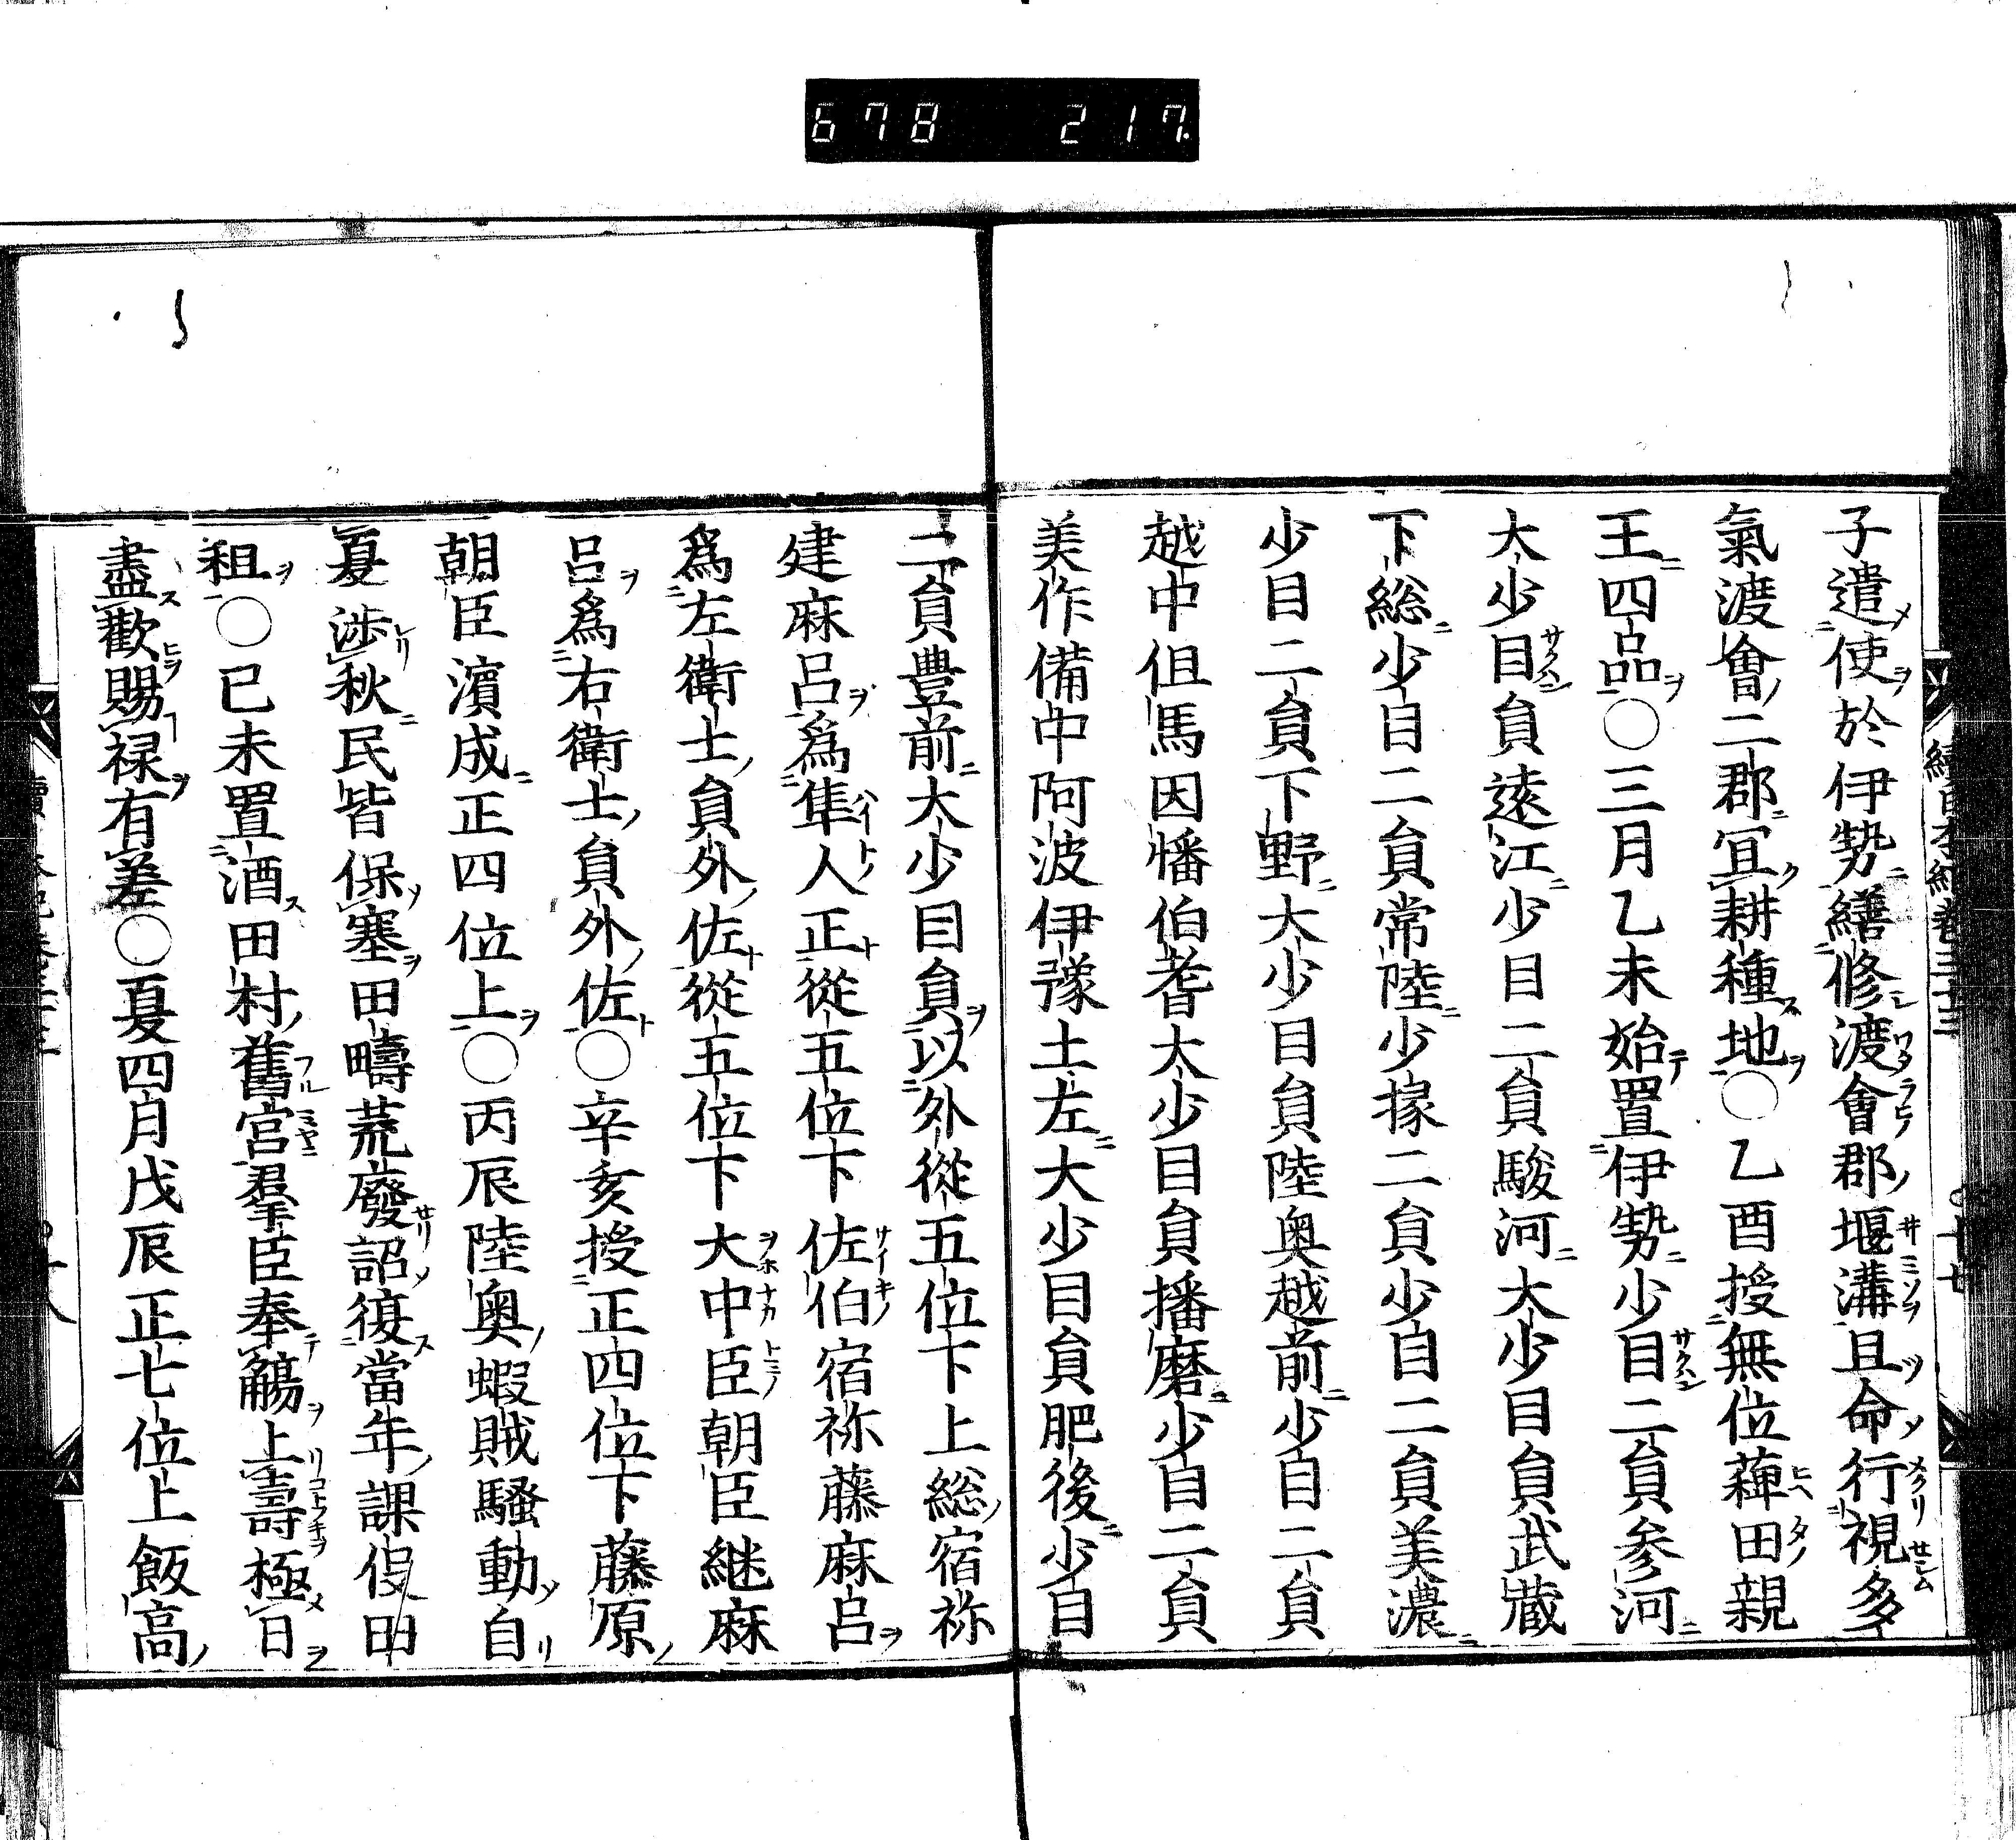 678 217
子遣使於伊勢繕修渡會郡堰溝且命行視多
氣渡會二郡冝耕種地○乙酉授無位䅣田親
王四品○三月乙未始置伊勢少目二貟参河
大少目貟遠江少目二貟駿河大少目貟武蔵
下総少目二貟常陸少掾二貟少目二貟美濃
少目二貟下野大少目貟陸奥越前少目二貟
越中但馬因幡伯耆大少目貟播磨少目二貟
美作備中阿波伊豫土左大少目貟肥後少目
二貟豊前大少目貟以外從五位下上総宿祢
建麻呂爲隼人正從五位下佐伯宿祢藤麻呂
爲左衛士貟外佐從五位下大中臣朝臣継麻
呂爲右衛士貟外佐○辛亥授正四位下藤原
朝臣濵成正四位上○丙辰陸奥蝦賊騷動自
夏渉秋民皆保塞田疇荒廢詔復當年課役田
租○已未置酒田村舊宮羣臣奉觴上壽極日
盡歡賜禄有差○夏四月戊辰正七位上飯高